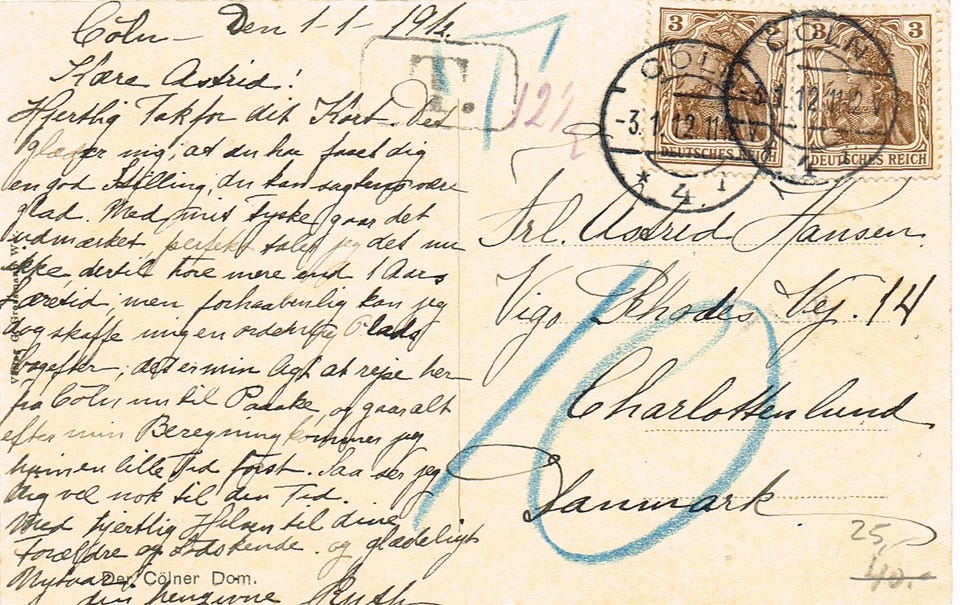 Cöln – Den 1-1-1912.
Kære Astrid!
Hjertlig Tak for dit Kort. Det
glæder mig, at du har faaet dig
en god Stilling, du kan sagtens være
glad. Med mit Tyske gaar det
udmærket, perfekt taler jeg det nu
ikke, dertil høre mere end 1 Aars
Læretid, men forhaabentlig kan jeg
dog skaffe mig en ordentlig Plads
bagefter; det er min Agt at rejse her
fra Cöln nu til Paaske, og gaar alt
efter min Beregning kommer jeg
hjem en lille Tid først. Saa ser jeg
dig vel nok til den Tid.
Med hjertlig Hilsen til dine
Forældre og Sødskende. og glædeligt
Nytaar!
din hengivne Ruth
Der Cölner Dom.
T.
T
12½
3
3
DEUTSCHES REICH
DEUTSCHES REICH
CÖLN
-3.1.12.11-12 V
* 4 1
CÖLN
-3.1.12.11-12 V
Frl. Astrid Hansen.
Vigo Rhodes Vej. 14
Charlottenlund
Danmark
10
25,-
40.-